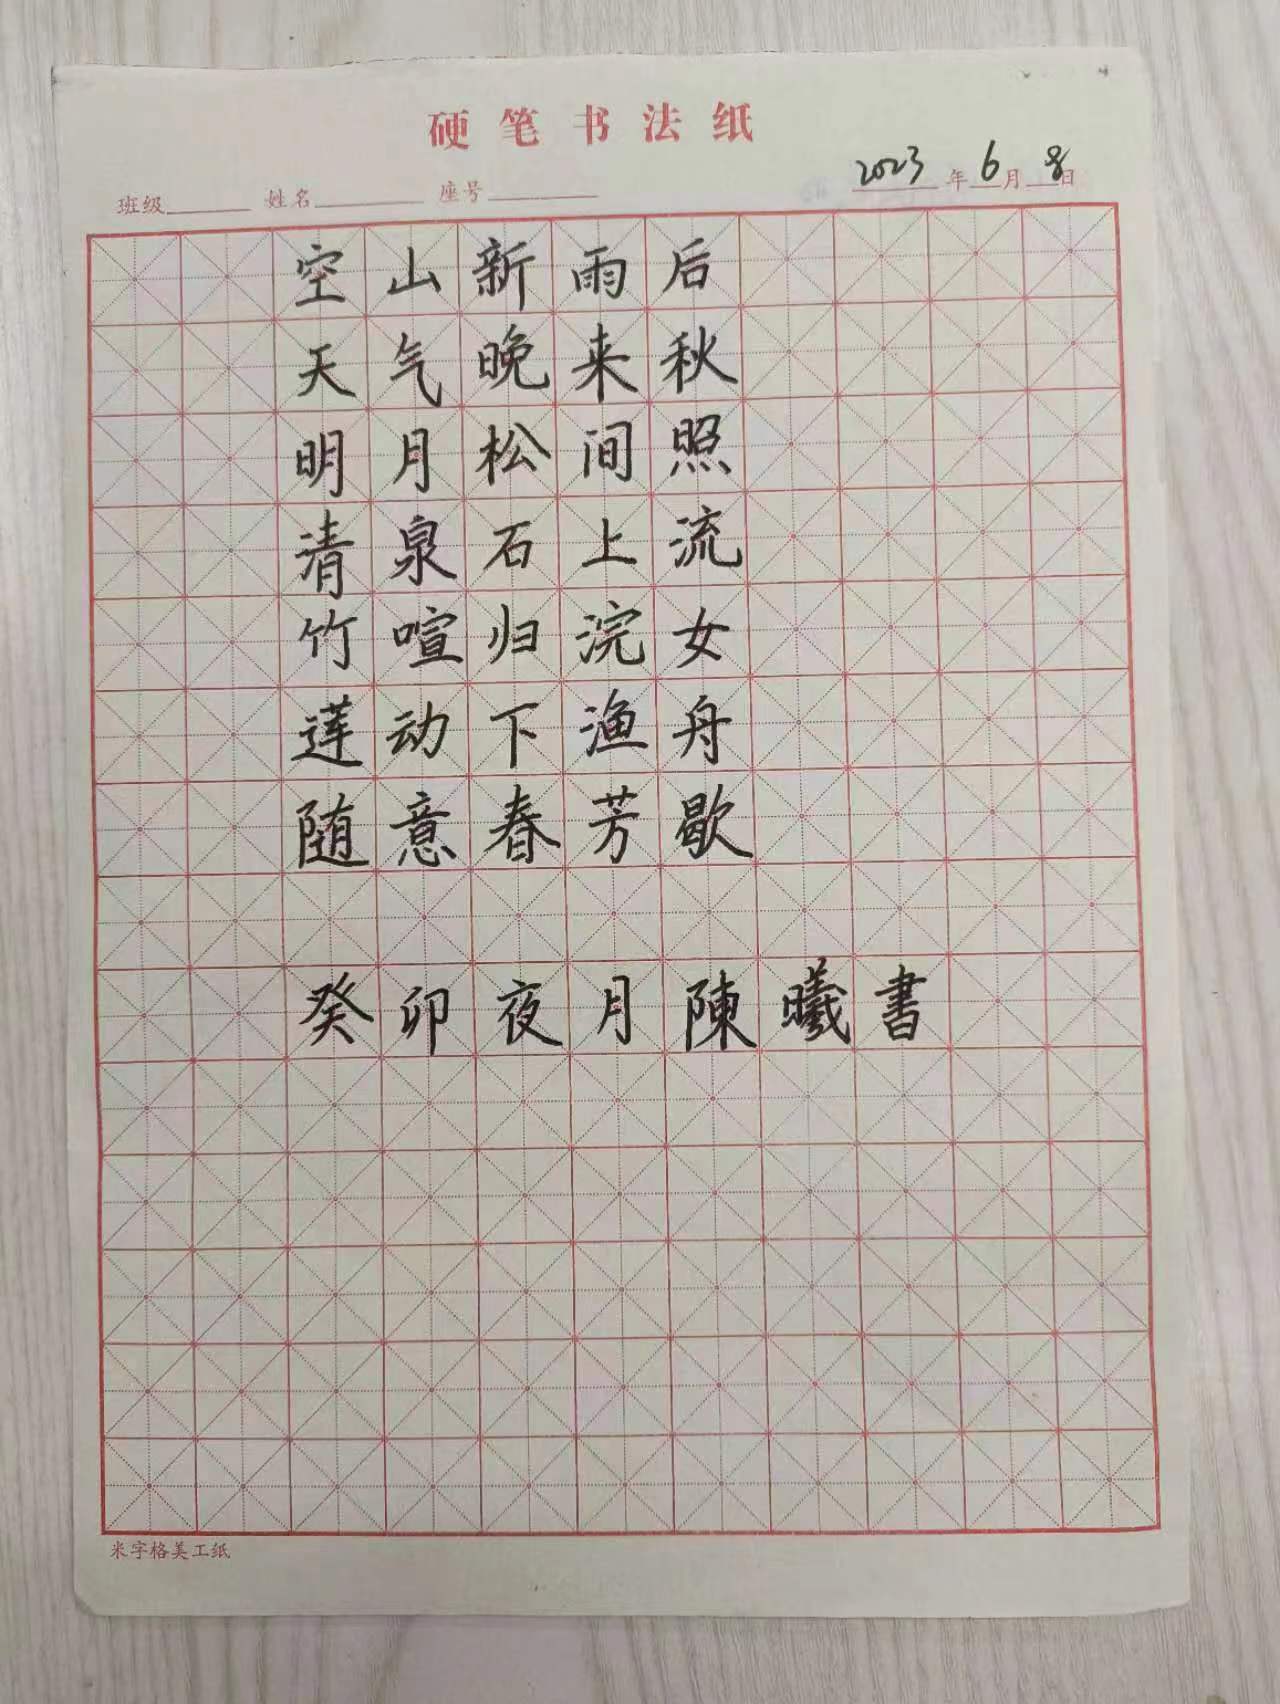 硬笔书法纸
班级 姓名 座号 2023年6月8日
空山新雨后
天气晚来秋
明月松间照
清泉石上流
竹喧归浣女
莲动下渔舟
随意春芳歇
癸卯夜月陳曦書
米字格美工纸